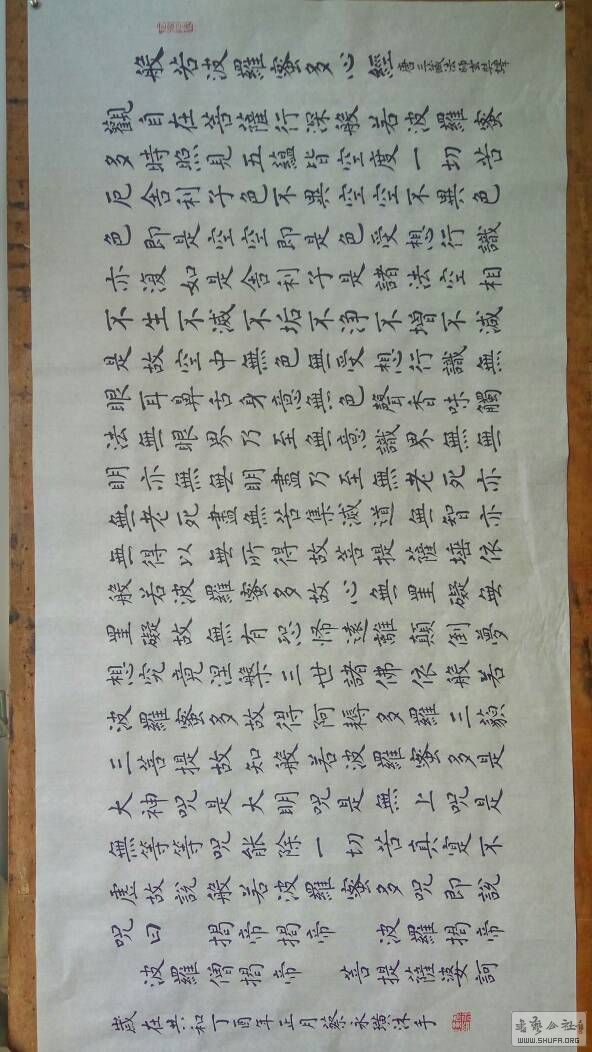 般若波羅蜜多心經 唐三藏法師玄奘譯
觀自在菩薩行深般若波羅蜜
多時照見五蘊皆空度一切苦
厄舍利子色不異空空不異色
色即是空空即是色受想行識
亦復如是舍利子是諸法空相
不生不滅不垢不淨不增不減
是故空中無色無受想行識無
眼耳鼻舌身意無色聲香味觸
法無眼界乃至無意識界無無
明亦無無明盡乃至無老死亦
無老死盡無苦集滅道無智亦
無得以無所得故菩提薩埵依
般若波羅蜜多故心無罣礙無
罣礙故無有恐怖遠離顛倒夢
想究竟涅槃三世諸佛依般若
波羅蜜多故得阿耨多羅三藐
三菩提故知般若波羅蜜多是
大神呪是大明呪是無上呪是
無等等呪能除一切苦真寔不
虛故說般若波羅蜜多呪即說
呪曰 揭帝揭帝 波羅揭帝
波羅僧揭帝 菩提薩婆訶
歲在共和丁酉年正月蔡永沐手
WWW.SHUFA.ORG